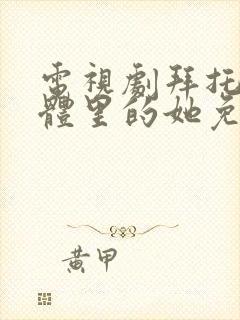 電視劇拜托
體里的她免
黃甲